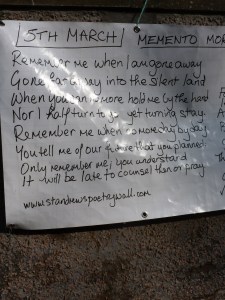 15TH MARCH MEMENTO MOR
Remember me when I am gone away
Gone far away into the silent land
When you can no more hold me by the hand
Nor I half turn to go yet turning stay.
Remember me when no more day by day
You tell me of our future that you planned:
Only remember me; you understand
It will be late to counsel then or pray.
www.standrewspoetrywall.com